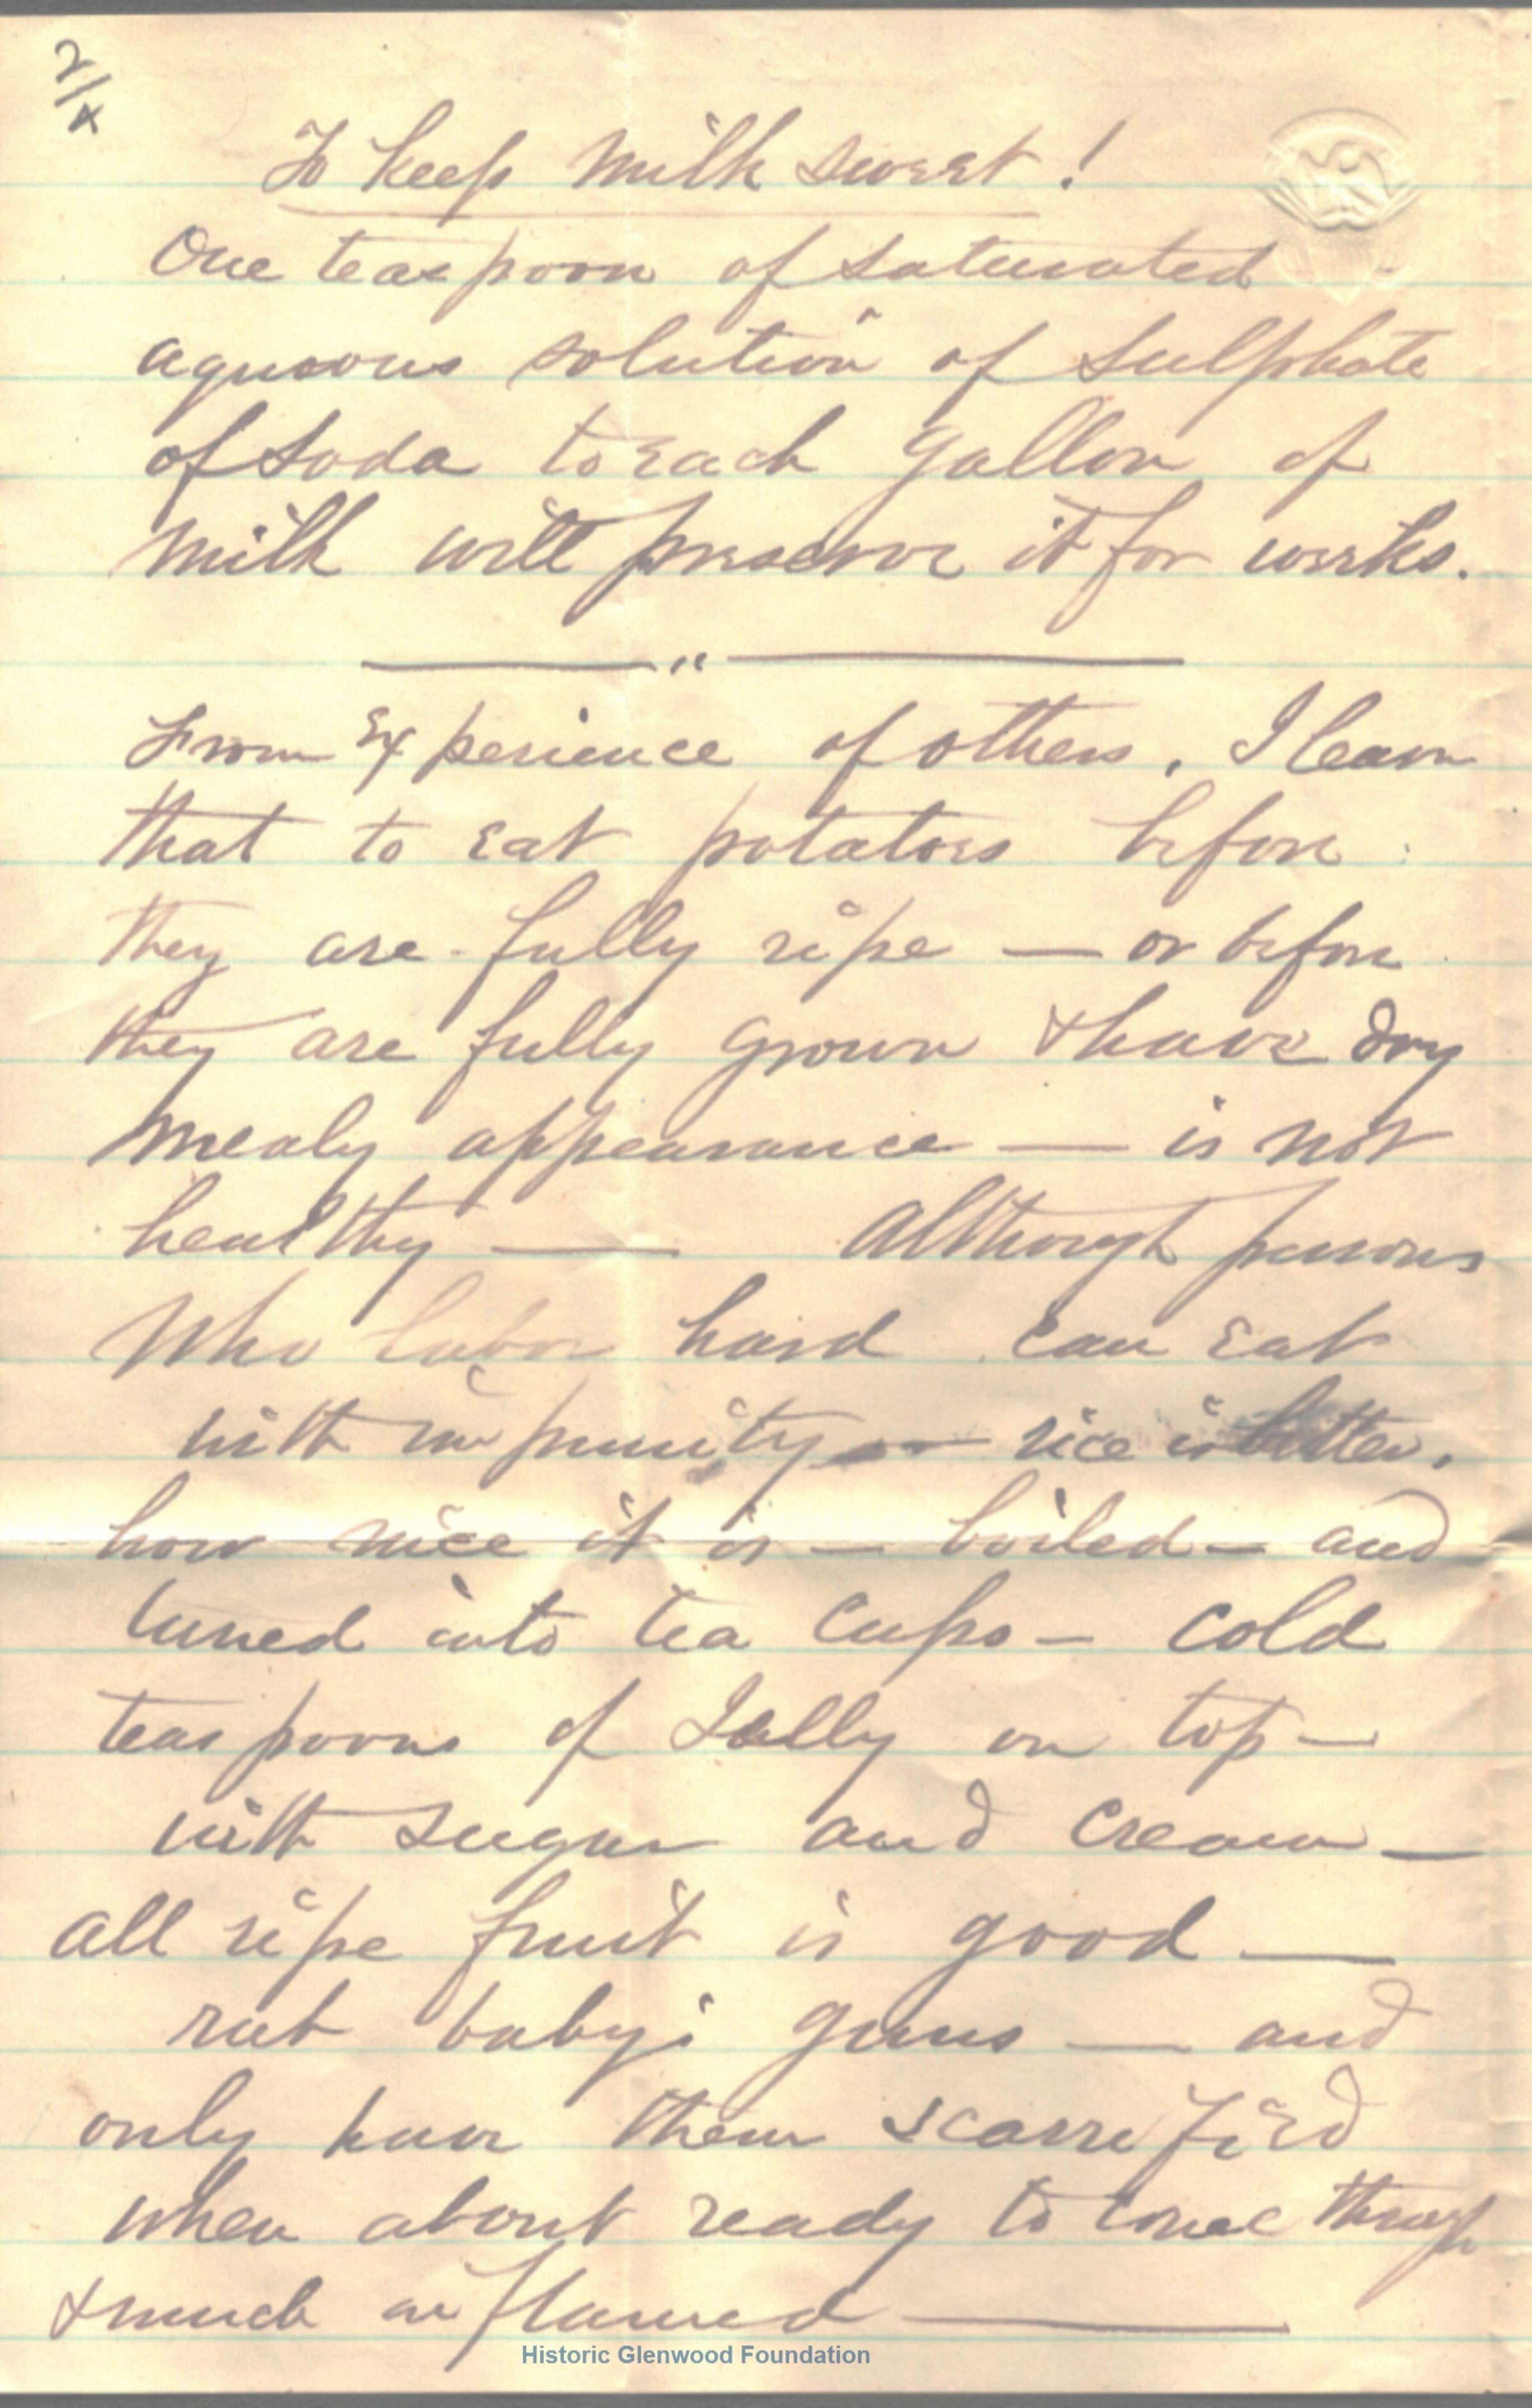 2/4
To keep milk sweet!
One teaspoon of saturated
aqueous solution of Sulphate
of Soda to each gallon of
milk will preserve it for weeks.
From Experience of others, I learn
that to eat potatoes before
they are fully ripe — or before
they are fully grown & have dry
mealy appearance — is not
healthy — Although persons
who labor hard can eat
with impunity — rice is better.
how nice it is — boiled — and
turned into tea cups — cold
teaspoons of Jelly on top —
with sugar and cream —
all ripe fruit is good —
rub baby's gums — and
only have them scarrified
when about ready to come through
& much inflamed —
Historic Glenwood Foundation